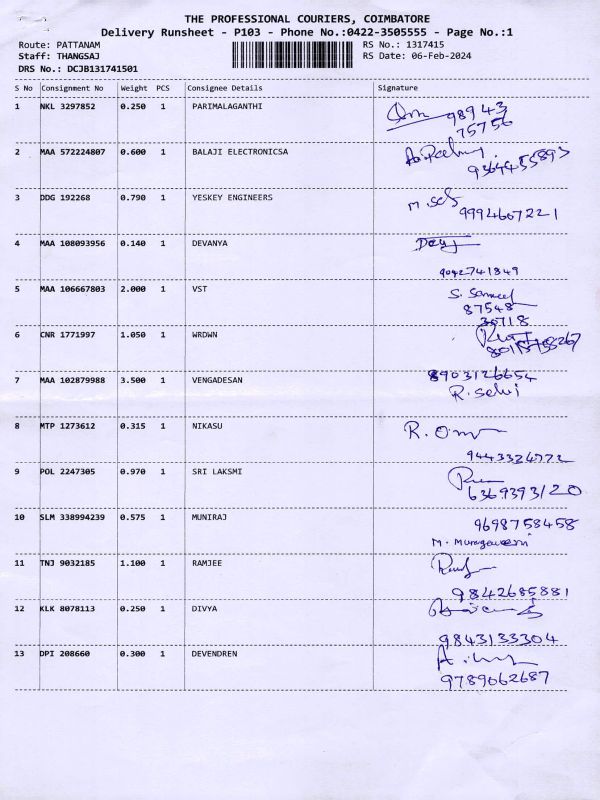 THE PROFESSIONAL COURIERS, COIMBATORE
Delivery Runsheet - P103 - Phone No.:0422-3505555 - Page No.:1
Route: PATTANAM RS No.: 1317415
Staff: THANGSAJ RS Date: 06-Feb-2024
DRS No.: DCJB131741501
S No Consignment No Weight PCS Consignee Details Signature
1 NKL 3297852 0.250 1 PARIMALAGANTHI
98943
75756
2 MAA 572224807 0.600 1 BALAJI ELECTRONICSA
9364455893
3 DDG 192268 0.790 1 YESKEY ENGINEERS
9994607221
4 MAA 108093956 0.140 1 DEVANYA
9092741849
5 MAA 106667803 2.000 1 VST
87548
30718
6 CNR 1771997 1.050 1 WRDWN
7 MAA 102879988 3.500 1 VENGADESAN
8903126654
R. Selvi
8 MTP 1273612 0.315 1 NIKASU
R.
9443324772
9 POL 2247305 0.970 1 SRI LAKSMI
6369393120
10 SLM 338994239 0.575 1 MUNIRAJ
9698758458
M.
11 TNJ 9032185 1.100 1 RAMJEE
9842685881
12 KLK 8078113 0.250 1 DIVYA
9843133304
13 DPI 208660 0.300 1 DEVENDREN
9789062687